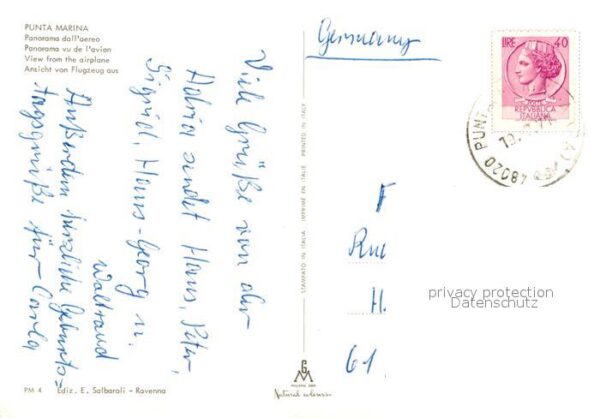 PUNTA MARINA
Panorama dall'aereo
Panorama vu de l'avion
View from the airplane
Ansicht von Flugzeug aus
Viele Grüße von der
Adria sendet Hans, Peter,
Sigrid, Hans-Georg u.
Waltraud
Außerdem herzliche Geburts=
tagsgrüße für Carla
PM 4 Ediz. E. Salbaroli - Ravenna
STAMPATO IN ITALIA IMPRIMÉ EN ITALIE PRINTED IN ITALY
Natural colour
Germany
LIRE 40
POSTE
REPVBBLICA
ITALIANA
48020 PUNT
F
Rue
H.
61
privacy protection
Datenschutz